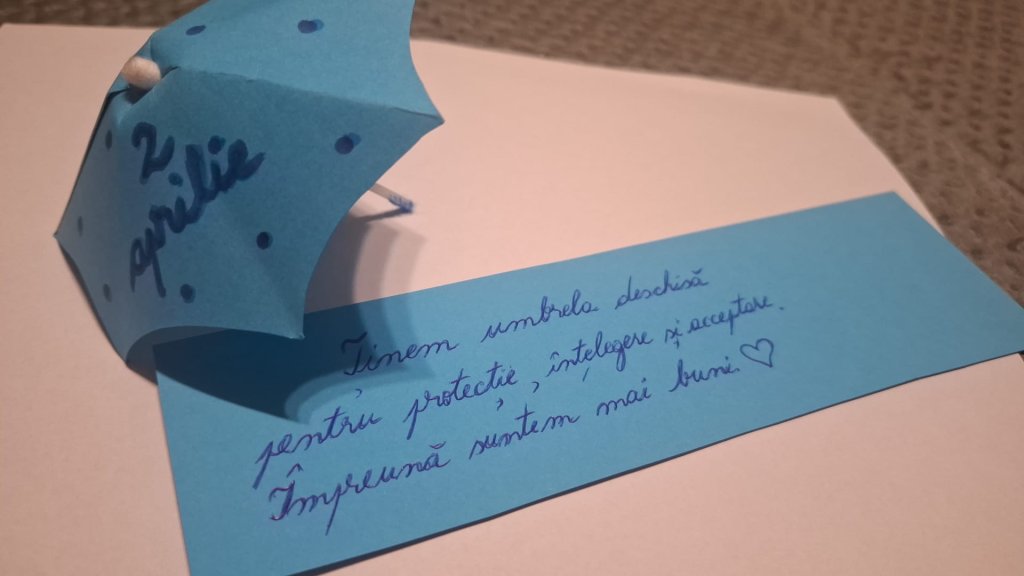 2
aprilie
Ținem umbrela deschisă
pentru protecție, înțelegere și acceptare.
Împreună suntem mai buni. ♡